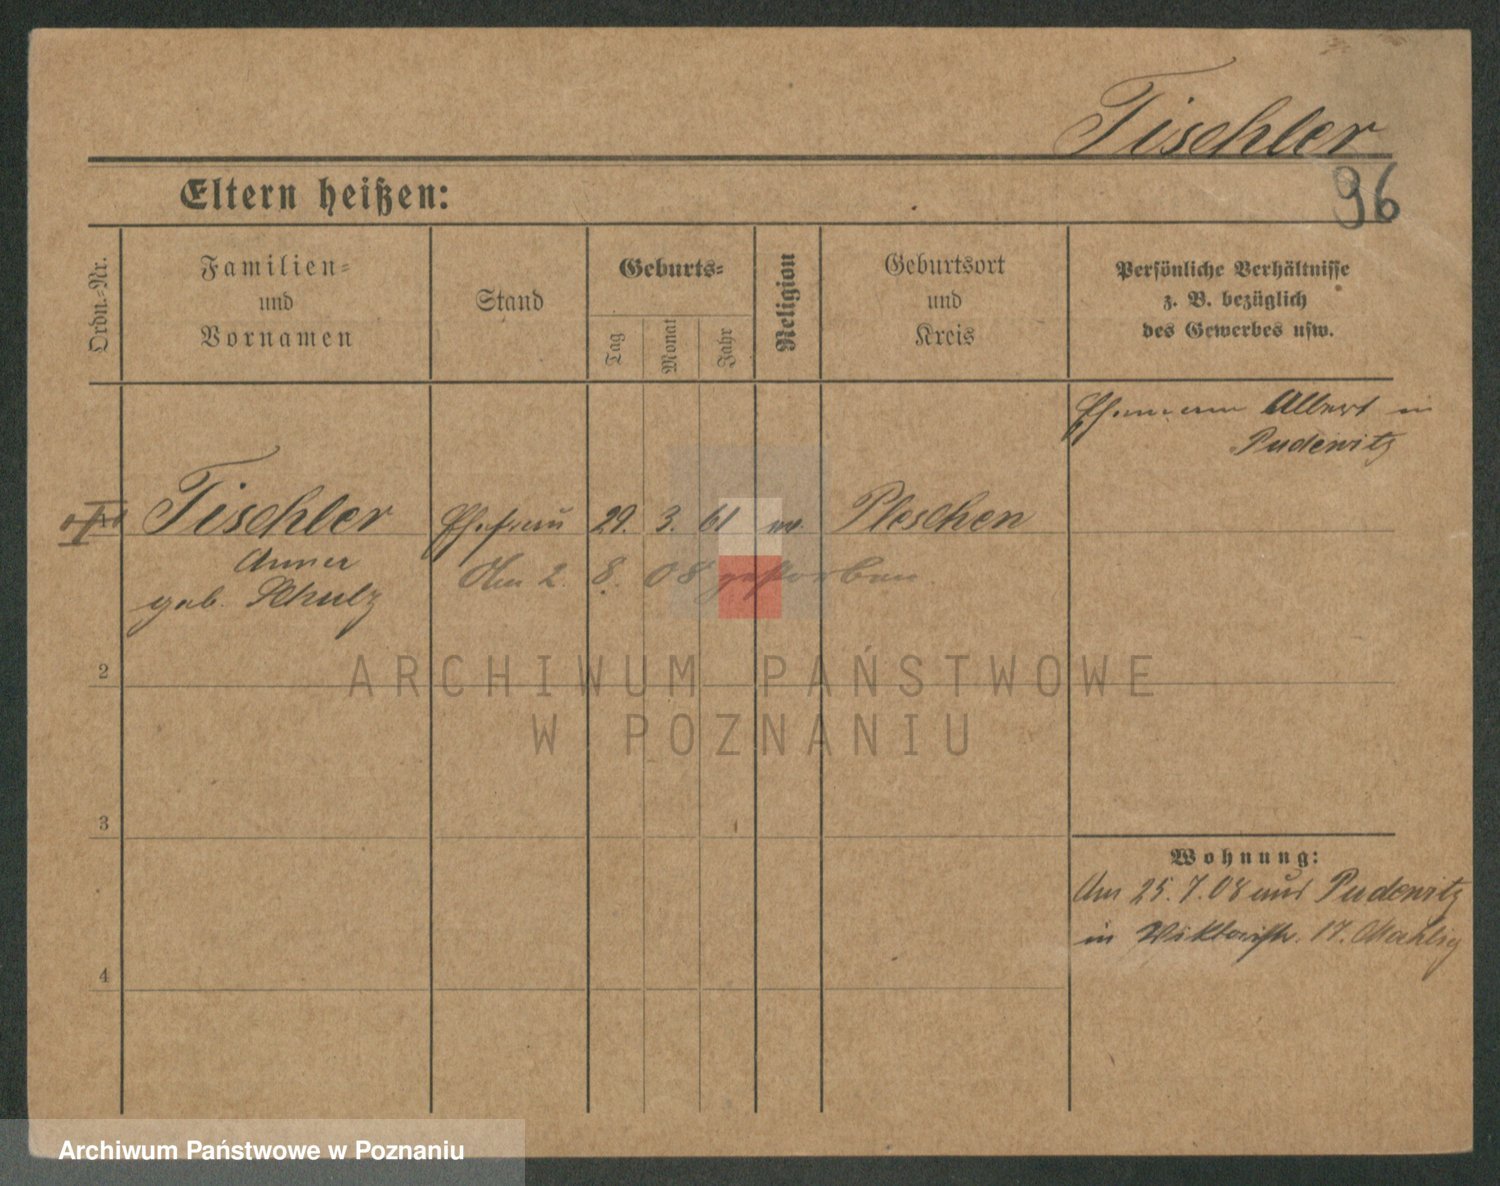 Tischler
96
Eltern heißen:
Ordn.-Nr.
Familien-
und
Vornamen
Stand
Geburts-
Tag
Monat
Jahr
Religion
Geburtsort
und
Kreis
Persönliche Verhältnisse
z. B. bezüglich
des Gewerbes usw.
Ehemann Albert in
Pudewitz
Tischler Ehefrau 29. 3. 61 Pleschen
Anna
geb. Schulz
Am 2. 8. 08 gestorben.
2
ARCHIWUM PAŃSTWOWE
W POZNANIU
3
Wohnung:
Am 25. 7. 08 aus Pudewitz
in 17.
4
Archiwum Państwowe w Poznaniu